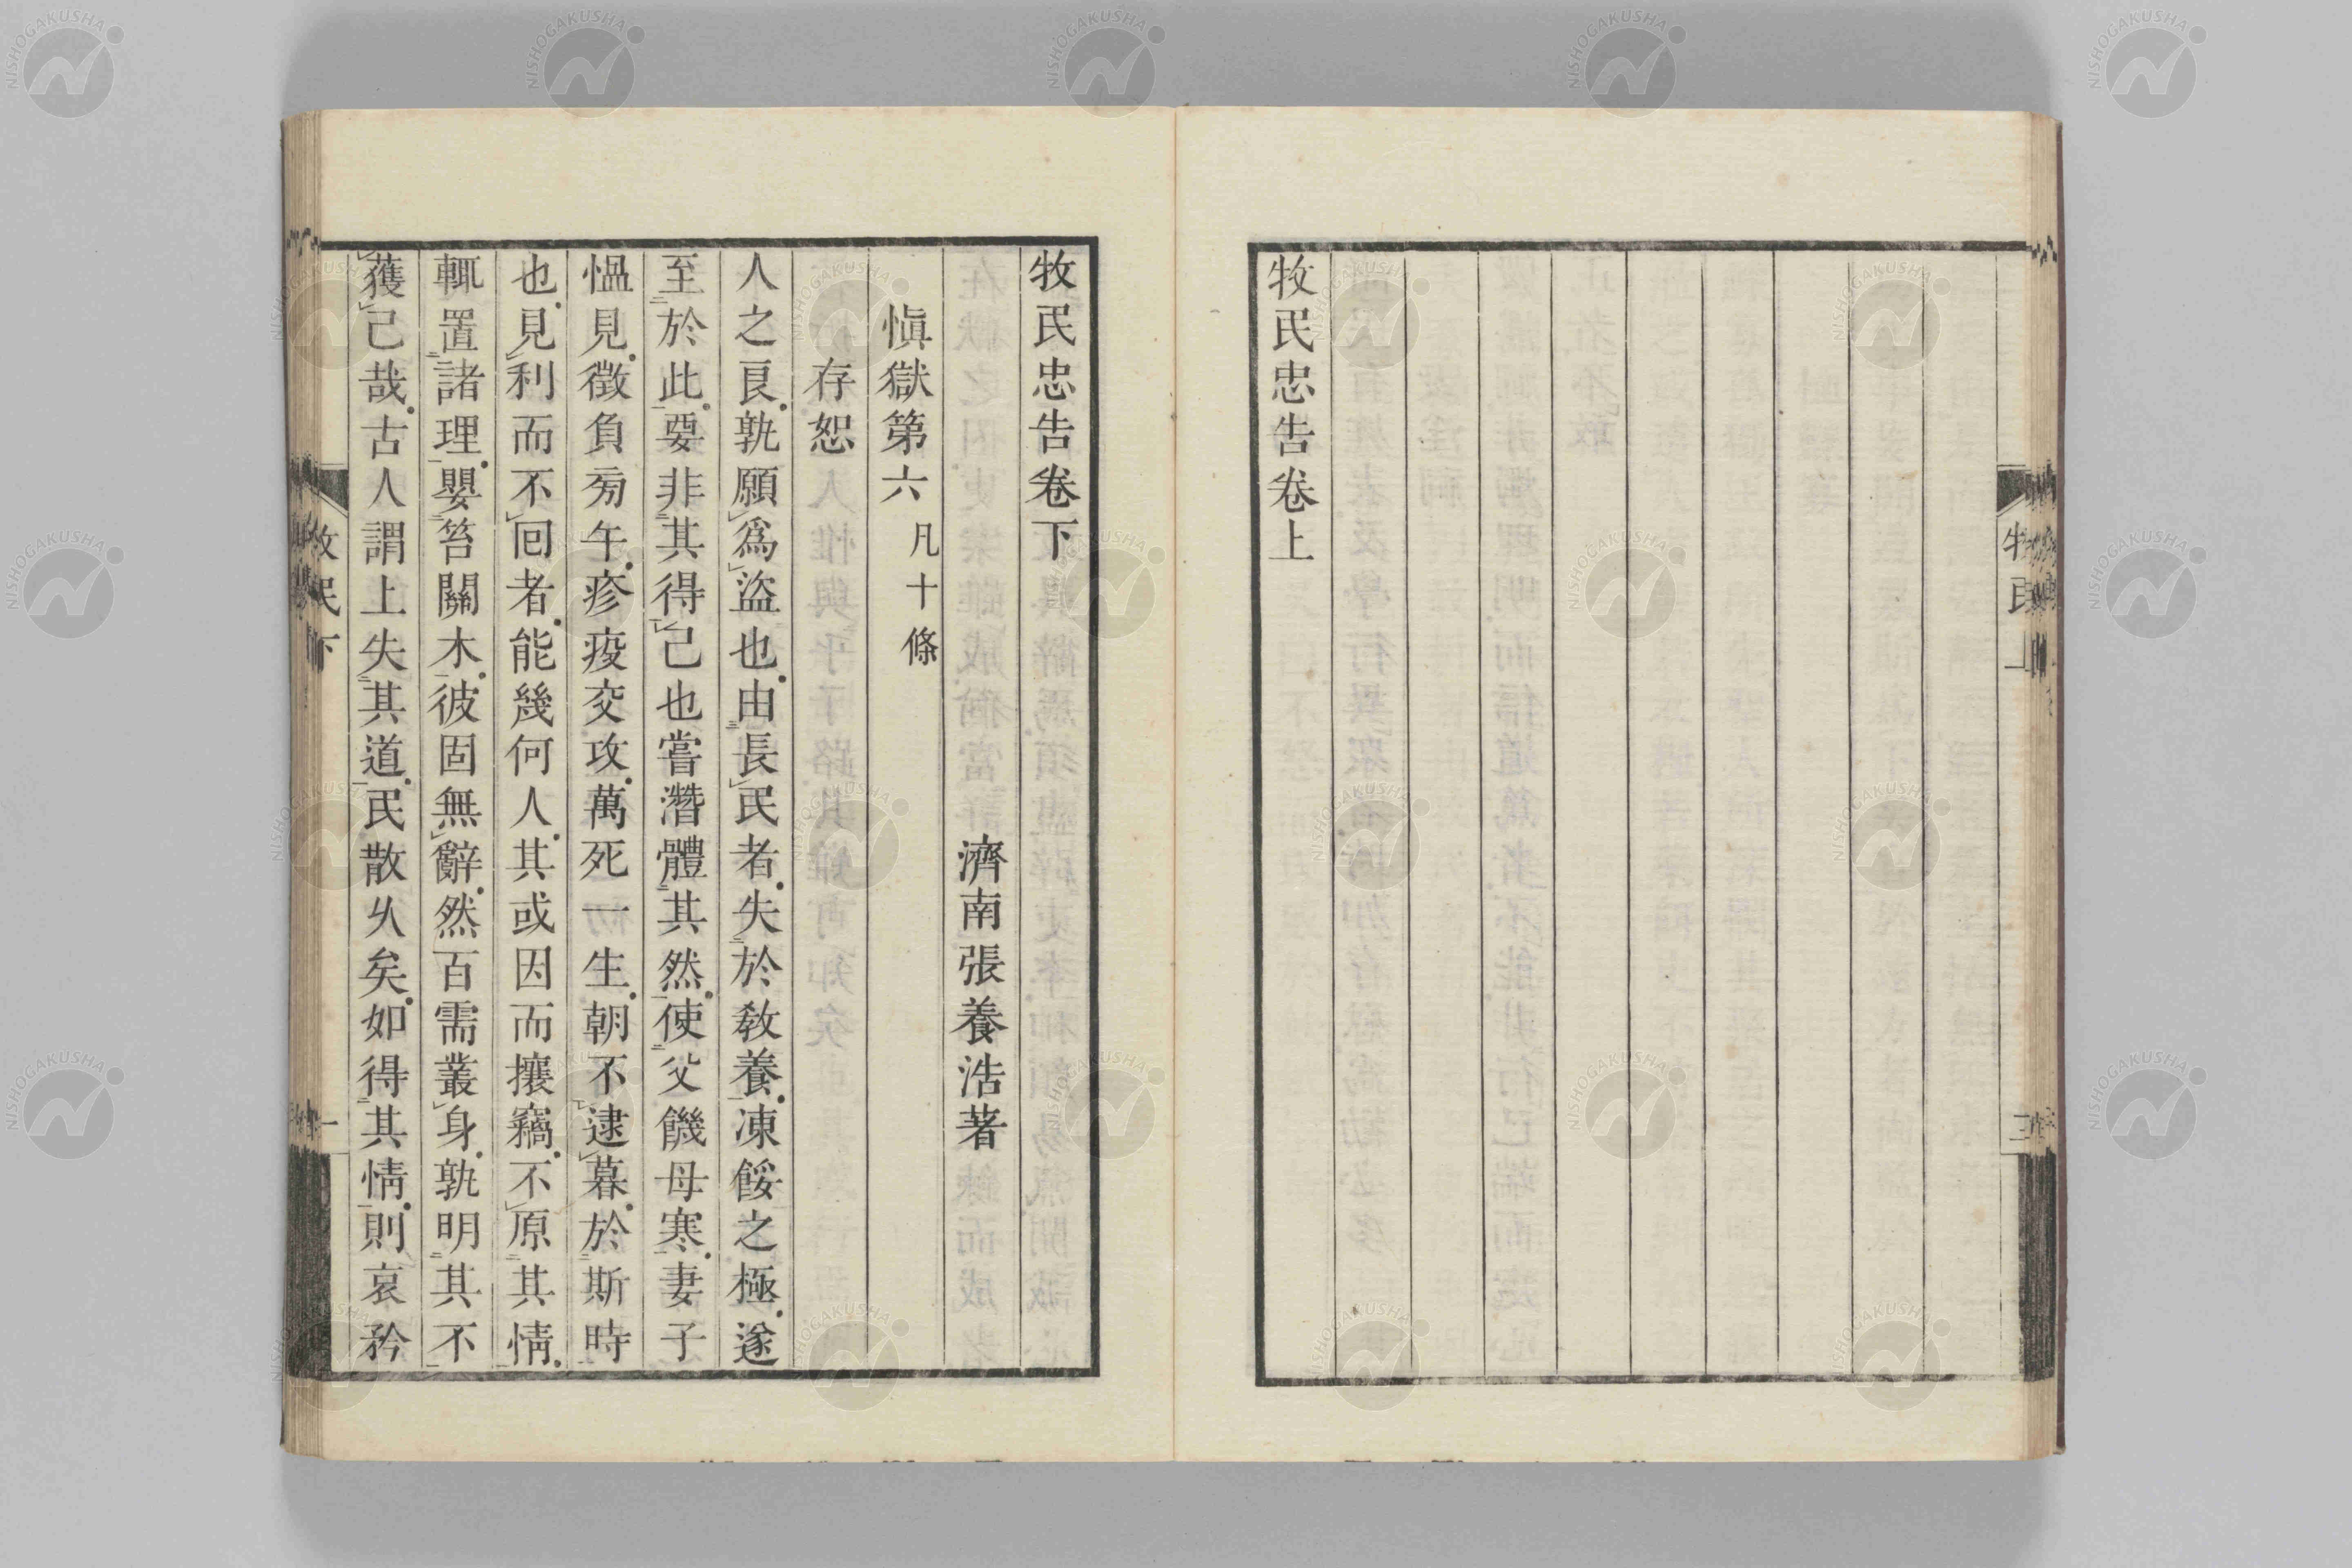 牧民忠告卷上
牧民忠告卷下
濟南張養浩著
愼獄第六 凡十條
存恕
人之良孰願爲盜也由長民者失於敎養凍餒之極遂
至於此要非其得已也嘗潛體其然使父饑母寒妻子
愠見徵負旁午疹疫交攻萬死一生朝不逮暮於斯時
也見利而不回者能幾何人其或因而攘竊不原其情
輒置諸理嬰笞關木彼固無辭然百需叢身孰明其不
獲已哉古人謂上失其道民散久矣如得其情則哀矜
牧民下
一
NISHOGAKUSHA